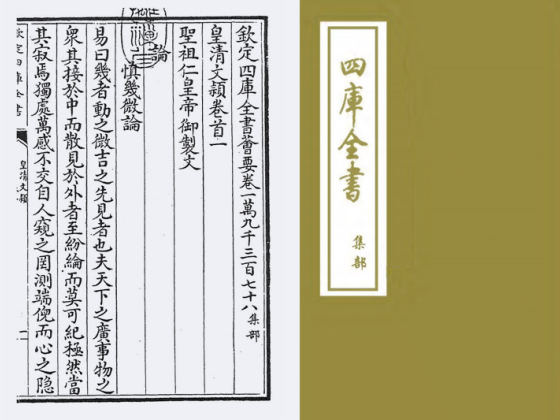 欽定四庫全書薈要卷一萬九千三百七十八集部
皇清文頴卷首一
聖祖仁皇帝御製文
論
慎幾微論
易曰幾者動之微吉之先見者也夫天下之廣事物之
衆其接於中而散見於外者至紛綸而莫可紀極然當
其寂焉獨處萬感不交自人窺之罔測端倪而心之隐
欽定四庫全書
皇清文頴
一
四庫全書
集部